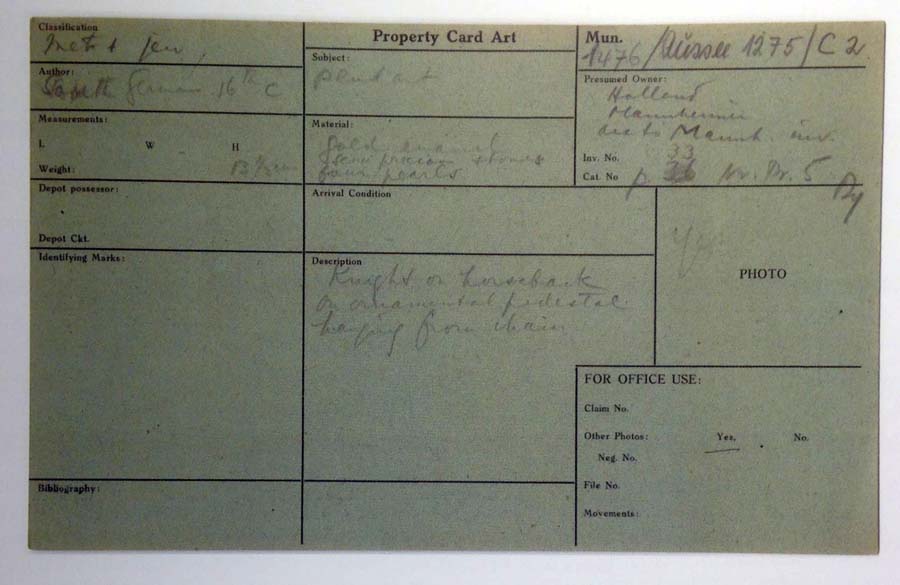 Classification
Met + jew.
Author:
South German 16th C
Measurements:
L W H
Weight:
Depot possessor:
Depot Ckt.
Identifying Marks:
Bibliography:
Property Card Art
Subject:
pendant
Material:
Gold enamel
semi precious stones
four pearls
Arrival Condition
Description
Knight on horseback
on ornamental pedestal
hanging from chain
Mun.
1476/Aussee 1275/C 2
Presumed Owner:
Holland
Mannheimer
acc to Mannh. inv.
Inv. No. 33
Cat. No p. 36 Nr. Br. 5
Yes
PHOTO
FOR OFFICE USE:
Claim No.
Other Photos: Yes. No.
Neg. No.
File No.
Movements: